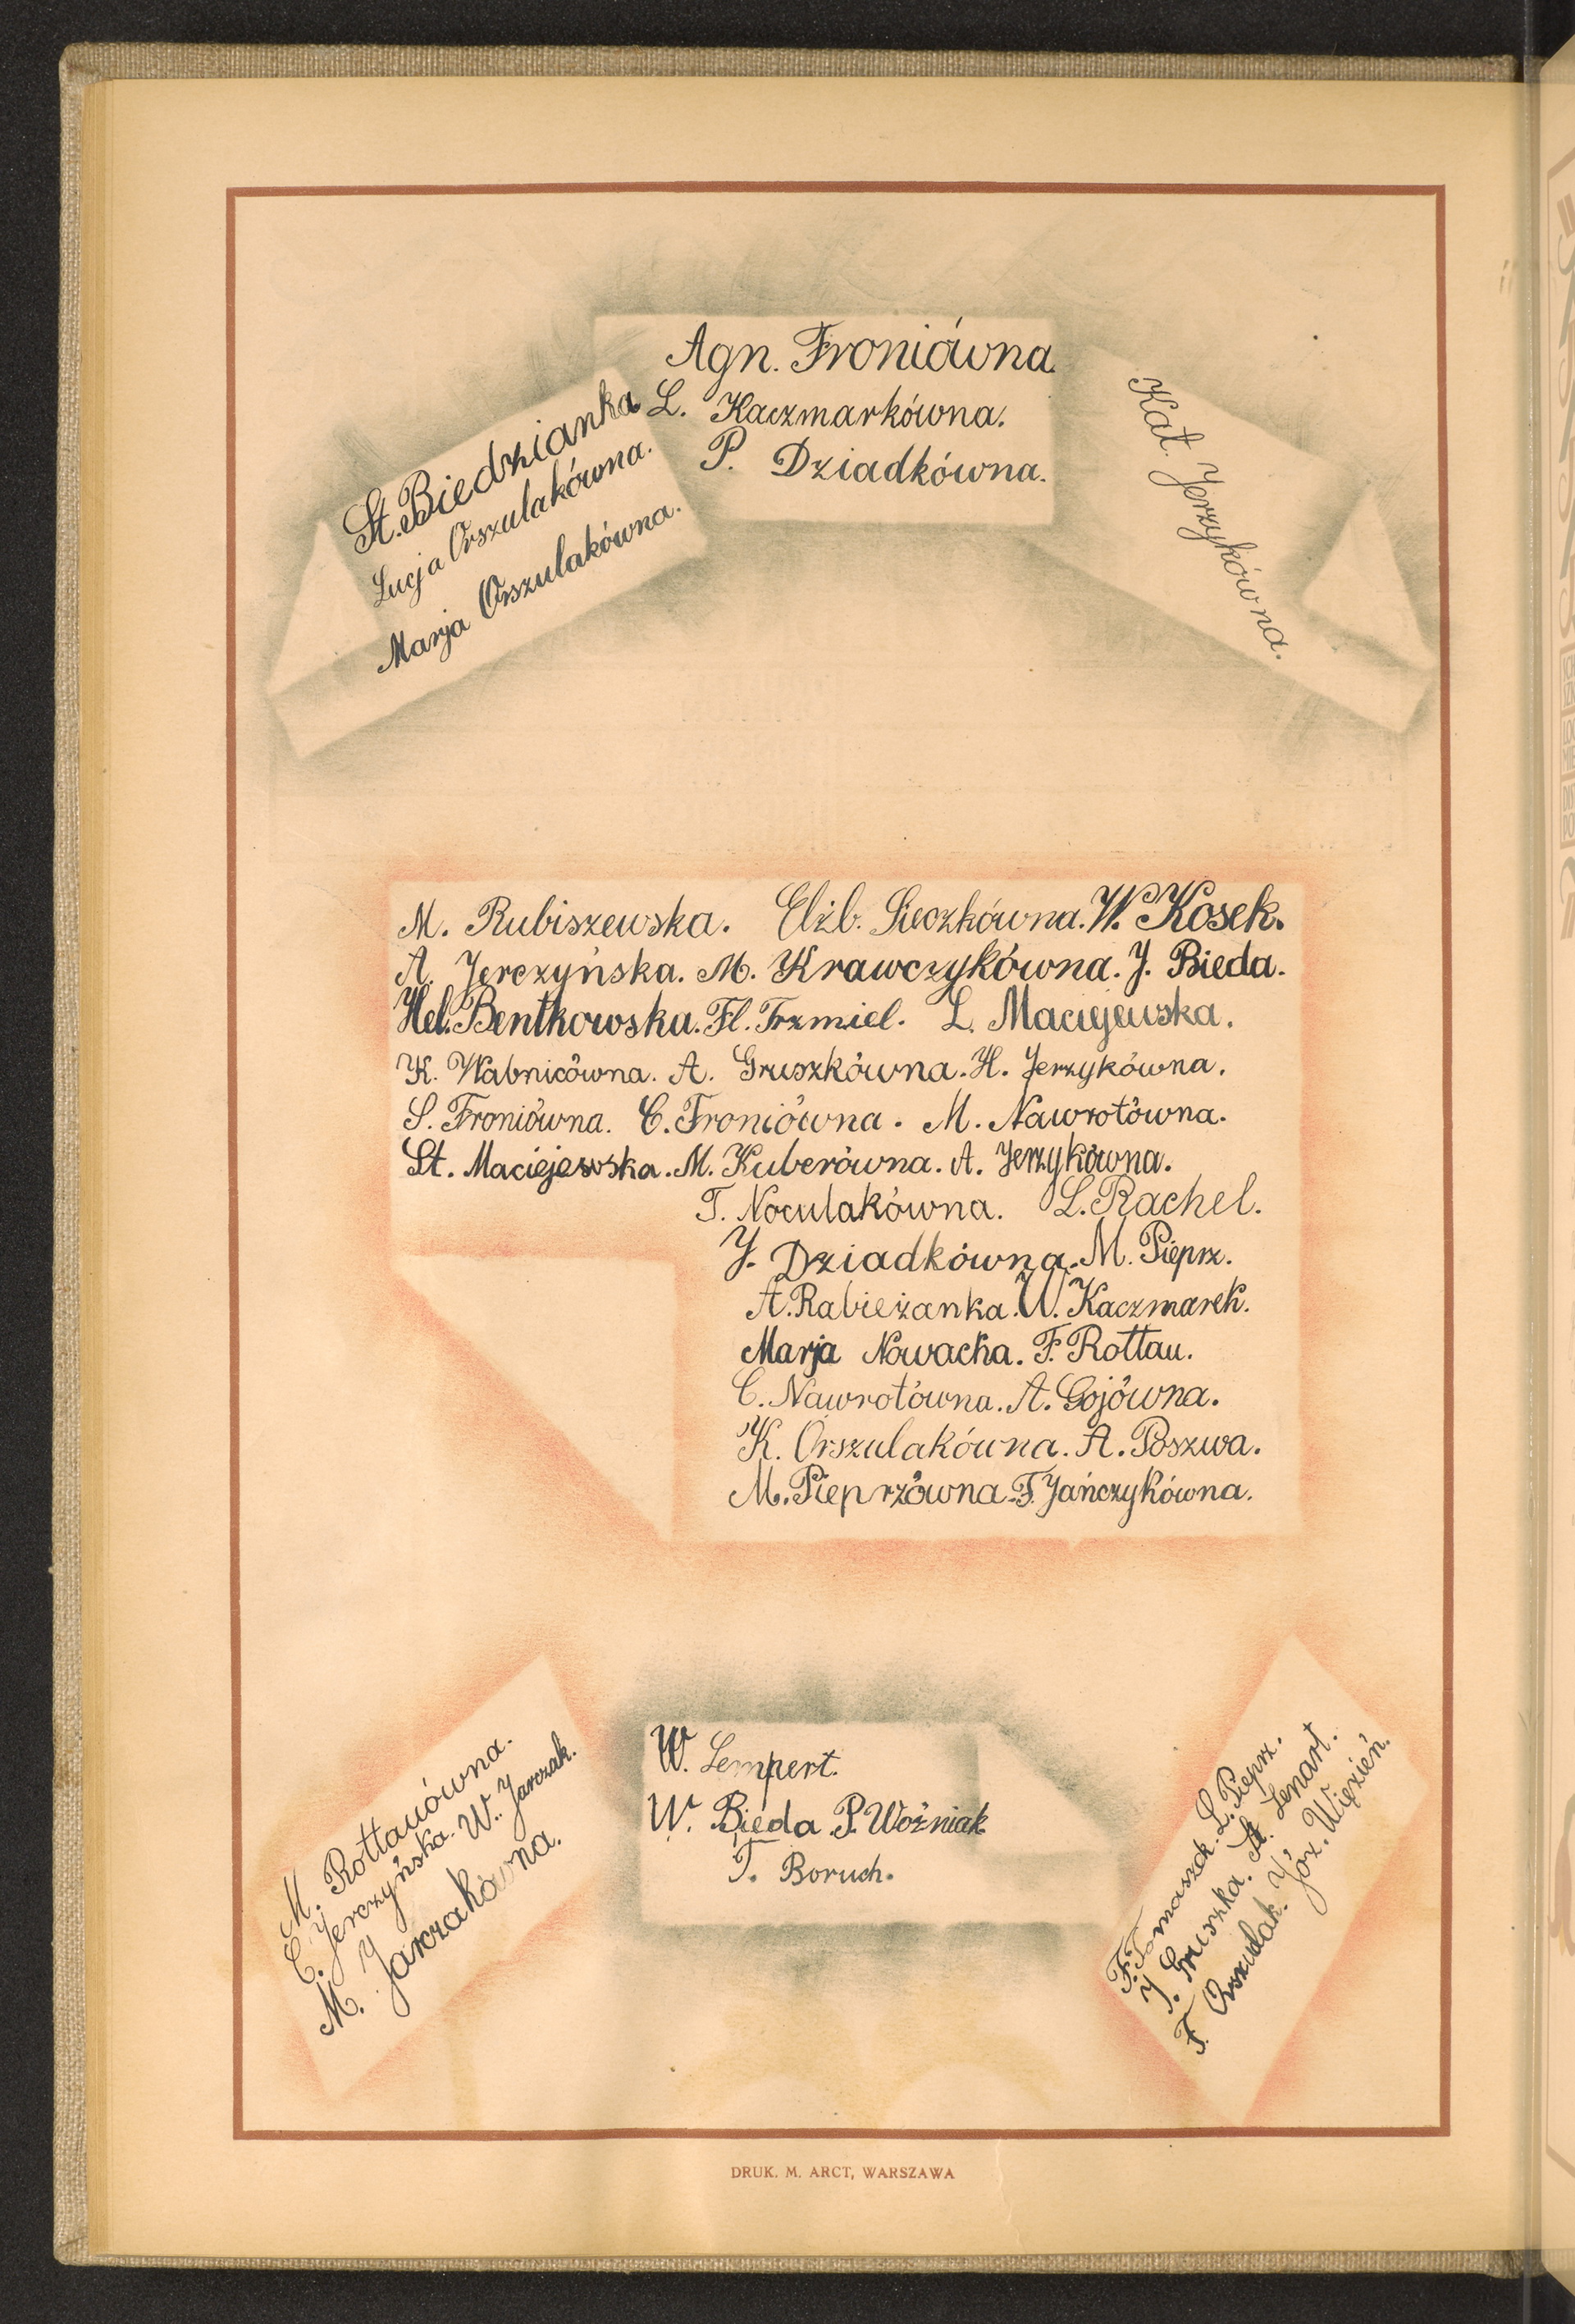 Agn. Froniówna.
L. Kaczmarkówna.
P. Dziadkówna.
St. Biedzianka
Lucja Orszulakówna.
Marja Orszulakówna.
Kat. Jerzykówna.
M. Rubiszewska. Elżb. Sieczkówna. W. Kosek.
A. Jerczyńska. M. Krawczykówna. J. Bieda.
Hel. Bentkowska. Fl. Trzmiel. L. Maciejewska.
K. Wabnicówna. A. Gruszkówna. H. Jerzykówna.
S. Froniówna. C. Froniówna. M. Nawrotówna.
St. Maciejewska. M. Kuberówna. A. Jerzykówna.
T. Noculakówna. L. Rachel.
J. Dziadkówna. M. Pieprz.
A. Rabieżanka. W. Kaczmarek.
Marja Nowacka. F. Rottau.
C. Nawrotówna. A. Gojówna.
K. Orszulakówna. A. Poszwa.
M. Pieprzówna. F. Jańczykówna.
M. Rottauówna.
C. Jerczyńska. W. Jarczak.
M. Jarczakówna.
W. Lempert.
W. Bieda P. Woźniak
T. Boruch.
F. Tomaszek. L. Pieprz.
J. Gruszka. St. Lenart.
F. Orszulak. Józ. Więzień.
DRUK. M. ARCT, WARSZAWA